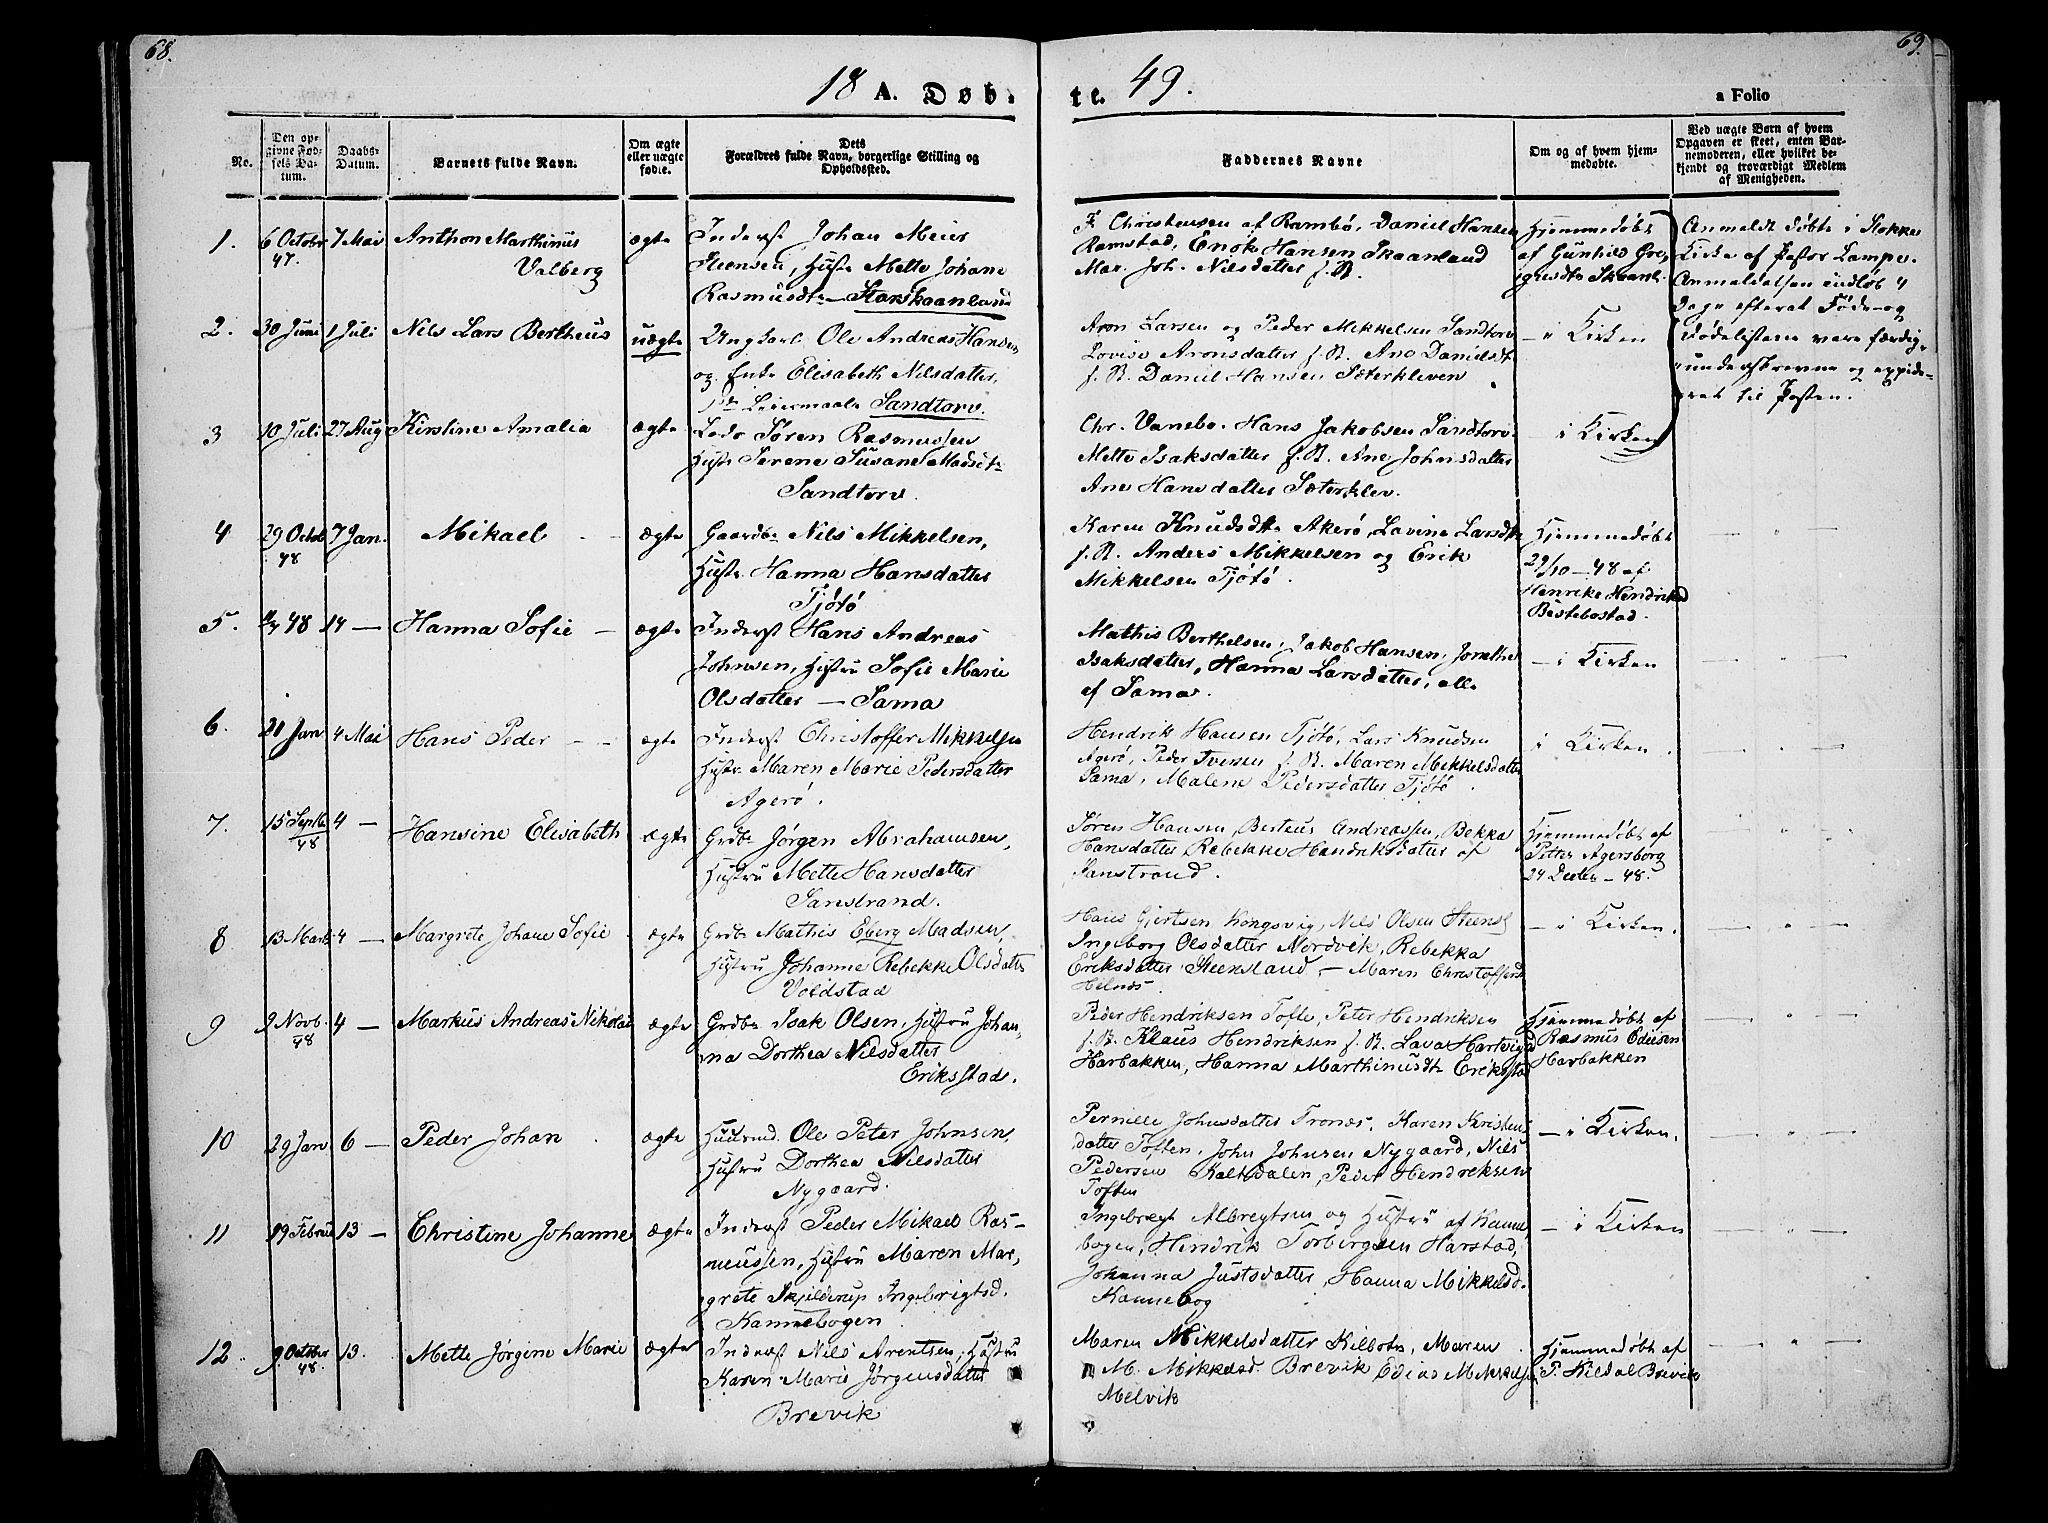 68.
69.
18 A. Døb-
te. 49.
a Folio
No.
Den op-
givne Fød-
sels Da-
tum.
Daabs-
Datum.
Barnets fulde Navn.
Om ægte
eller uægte
fødte.
Dets
Forældres fulde Navn, borgerlige Stilling og
Opholdssted.
Faddernes Navne
Om og af hvem hjem-
medøbte.
Ved uægte Børn af hvem
Opgaven er skeet, enten Bar-
nemoderen, eller hvilket be-
kjendt og troværdigt Medlem
af Menigheden.
1.
6 Octobr
47.
7 Mai
Anthon Marthinus
Valberg
ægte
Inderst Johan Meier
Steensen, Hustr Mette Johane
Rasmusdtr — Storskaanland
F Christensen af Rambø, Daniel Hansen
Ramstad, Enok Hansen Skaanland
Mar. Joh. Nilsdatter s. St.
Hjemmedøbt
af Gunhild Gre-
gusdtr Skaanl.
Anmeldt døbt i Stokke
Kirke af Pastor Lampe.
Anmeldelsen indløb 4
Dage efterat Føde- og
Dødelisterne vare færdig-
underskrevne og expide-
ret til Posten.
2.
30 Juni
1 Juli
Nils Lars Bertheus
uægte
Ungkarl Ole Andreas Hansen
og Enke Elisabeth Nilsdatter,
Leiermaal Sandtorv.
Aron Larsen og Peder Mikkelsen Sandtorv
Lovise Aronsdatter s. St. Ane Danielsdt
s. St. Daniel Hansen Sæterkleven
— i Kirken
3
10 Juli
27 Aug
Kirstine Amalia
ægte
Søren Rasmussen
Hustr Serene Susane Madsdtr
Sandtorv.
Chr. Vanebo. Hans Jakobsen Sandtorv.
Mette Isaksdatter s. St. Ane Johnsdatter
Ane Hansdatter Sæterklev.
— i Kirken
4
29 Octob
48
7 Jan.
Mikael
ægte
Gaardbr Nils Mikkelsen,
Hustr Hanna Hansdatter
Tjøtø
Karen Knudsdtr Akerø, Lavine Larsdtr
s. St. Anders Mikkelsen og Erik
Mikkelsen Tjøtø.
Hjemmedøbt
29/10 — 48 af
Henrike Hendriksd
Bestebostad.
5.
48
14 —
Hanna Sofie
ægte
Inderst Hans Andreas
Johnsen, Hustru Sofie Marie
Olsdatter — Sama
Mathis Berthelsen, Jakob Hansen, Jonetha
Isaksdatter, Hanna Larsdatter, alle
af Sama.
— i Kirken
6.
21 Jan
4 Mai
Hans Peder
ægte
Inderst Christoffer Mikkelsen
Hustr Maren Marie Pedersdatter
Agerø.
Hendrik Hansen Tjøtø, Lars Knudsen
Agerø, Peder Iversen s. St. Maren Mikkelsdatter
Sama, Malene Pedersdatter Tjøtø.
i Kirken.
7.
15 Septb
48
4 —
Hansine Elisabeth
ægte
Grdbr Jørgen Abrahamsen,
Hustru Mette Hansdatter
Sanstrand.
Søren Hansen, Berteus Andreassen, Bekka
Hansdatter Rebekke Hendriksdatter af
Sanstrand.
Hjemmedøbt af
Petter Agersborg
24 Decbr — 48.
8
13 Marts
4 —
Margrete Johane Sofie
ægte
Grdbr Mathis Eberg Madsen,
Hustru Johanne Rebekke Olsdatter
Voldstad
Hans Gjertsen Kongsvig, Nils Olsen Steensl
Ingeborg Olsdatter Nordvik, Rebekka
Eriksdatter Steensland, — Maren Christoffersd
Helnæs.
— i Kirken.
9
9 Novb.
48
4 —
Markus Andreas Nikolai
ægte
Grdbr Isak Olsen, Hustru Johan-
na Dorthea Nilsdatter
Eriksstad.
Peder Hendriksen Tofte, Peter Hendriksen
s. St. Klaus Hendriksen s. St. Lava Hartvigsd
Harbakken, Hanna Marthinusdtr Eriksstad
Hjemmedøbt af
Rasmus Ediesen
Harbakken
10
29 Jan
6 —
Peder Johan
ægte
Huusmd. Ole Peter Johnsen,
Hustru Dorthea Nilsdatter
Nygaard.
Pernille Johnsdatter Tronæs, Karen Kristens-
datter Toften, John Johnsen Nygaard, Nils
Pedersen Kaltsdalen, Peder Hendreksen
Toften
— i Kirken.
11
19 Februar
13 —
Christine Johanne
ægte
Inderst Peder Mikael Ras-
mussen, Hustru Maren Mar-
grete Skjelderup Ingebrigtsd.
Kannebogen.
Ingebregt Albregtsen og Hustru af Kanne-
bogen, Hendrik Torbergsen Harstad,
Johanna Justsdatter, Hanna Mikkelsd.
Kannebog
— i Kirken
12.
9 October
48.
13.
Mette Jørgine Marie
ægte
Inderst Nils Arentsen, Hustru
Karen Marie Jørgensdatter
Brevik
Maren Mikkelsdatter Kilbotn, Maren
M. Mikkelsd Brevik Edias Mikkelsen
Melvik
Hjemmedøbt af
P. Kildal Brevik